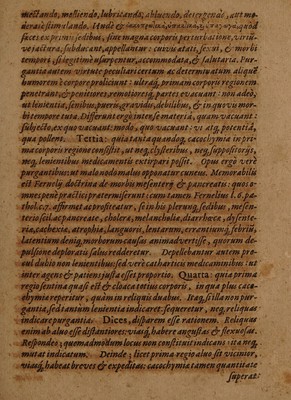 mectando, molliendo, lubricando, abluendo, detergendo, aut mo-
derate stimulando,
faces ex primis sedibus, sine magna corporis perturbatione, viriū-
ve jactura, subducant, appellantur: cuivis ætati, sexui, & morbi
tempori, si legitime usurpentur, accommodata, & salutaria. Pur-
gantia autem virtute peculiari certum ac determinatum aliquē
humorem è corpore proliciunt: ultraq, primam corporis regionem
penetrant, & penitiores, remotioresq, partes evacuant: nō ideò,
ut lenientia, senibus, pueris, gravidis, debilibus, & in quovis mor-
bi tempore tuta. Differunt ergo inter se materia, quam vacuant:
subjecto, ex quo vacuant: modo, quo vacuant: viatq, potentia,
qua pollent. Tertia: quia si tanta quandoq, cacochymia in pri-
ma corporis regione consistit, ut neq, clysteribus, neq, suppositoriis,
neq, lenientibus medicamentis extirpari possit. Opus ergò verè
purgantibus: ut malo nodo malus opponatur cuneus. Memorabilis
est Fernelii doctrina de morbis mesenterii & pancreatis: quos o-
mnes penè practici prætermiserunt: cum tamen Fernelius l. 6. pa-
thol. c. 7. affirmet ac profiteatur, se in his plerunq, sedibus, mesen-
terio scil. ac pancreate, cholera, melancholia, diarrhœa, dysente-
ria, cachexia, atrophia, languoris, lentarum, errantiumq, febriū,
latentium deniq, morborum causas animadvertisse, quorum de-
pulsione deplorati salus redderetur. Depellebantur autem pro-
cul dubio non lenientibus, sed verè catharticis medicaminibus: ut
inter agens & patiens justa esset proportio. Quarta: quia prima
regio sentina quasi est & cloaca totius corporis, in qua plus caco-
chymia reperitur, quàm in reliquis duabus. Itaq, si illa non pur-
gantia, sed tantum lenientia indicaret, sequeretur, neq, reliquas
indicare purgantia. Dices, disparem esse rationem. Reliquas
enim ab alvo esse distantiores: viasq, habere angustas & flexuosas.
Respondeo; quemadmodum locus non constituit indicans: ita neq,
mutat indicatum. Deinde; licet prima regio alvo sit vicinior,
viasq, habeat breves & expeditas: cacochymia tamen quantitate
superat